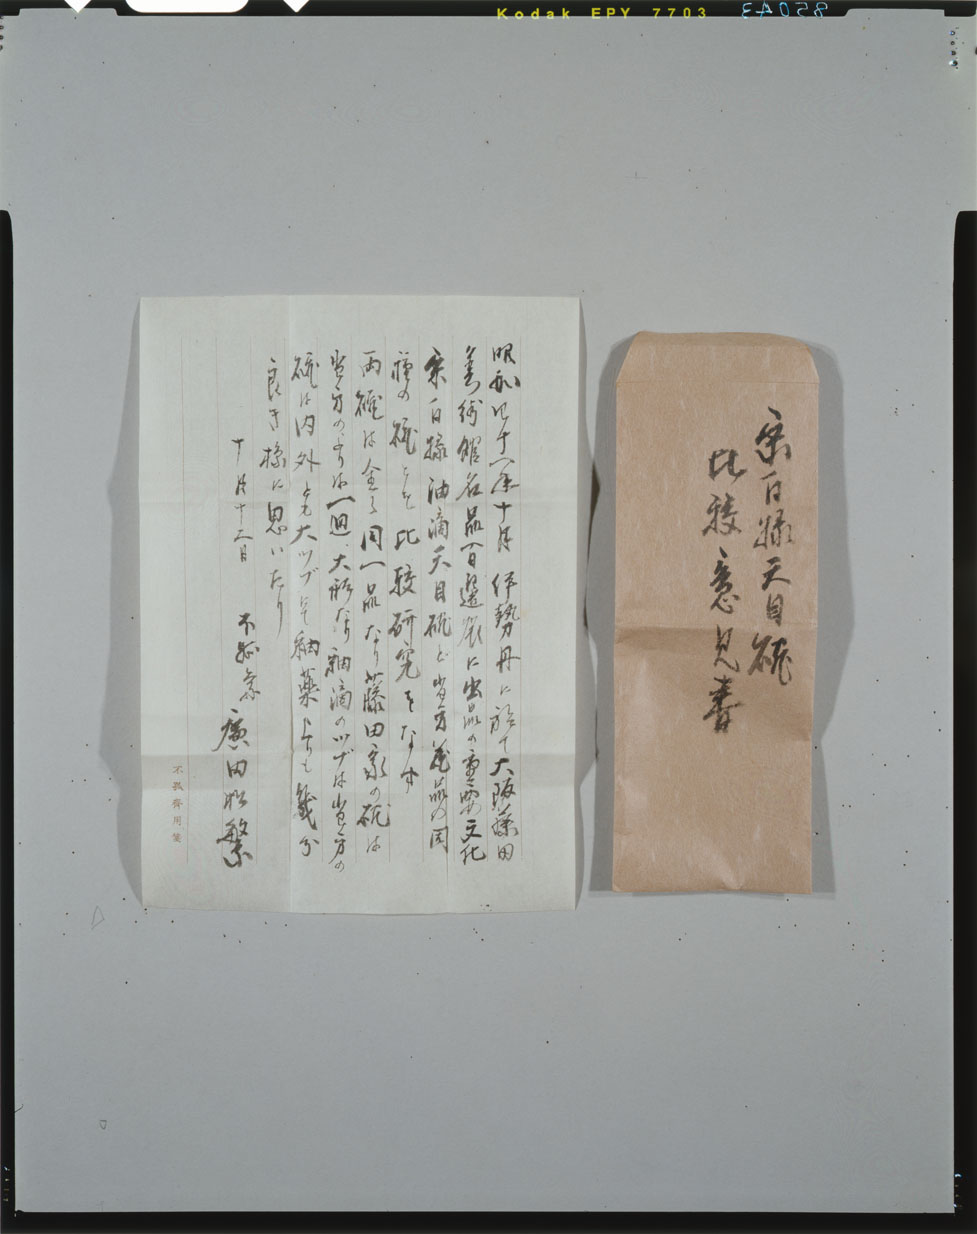 Kodak EPY 7703 85043
宋白縁天目碗
比較意見書
昭和四十 年十月 伊勢丹に於て大阪藤田
美術館名品百選展に出品の重要文化
宋白縁油滴天目碗と当方蔵品の同
種の碗とを比較研究をなす
両碗は全く同一品なり藤田家の碗は
当方のよりは一廻大形なり 油滴のツブは当方の
碗は内外とも大ツブにて釉薬よりも幾分
良き様に思いたり
十月十二日 不孤斎 廣田松繁
不孤齊用箋